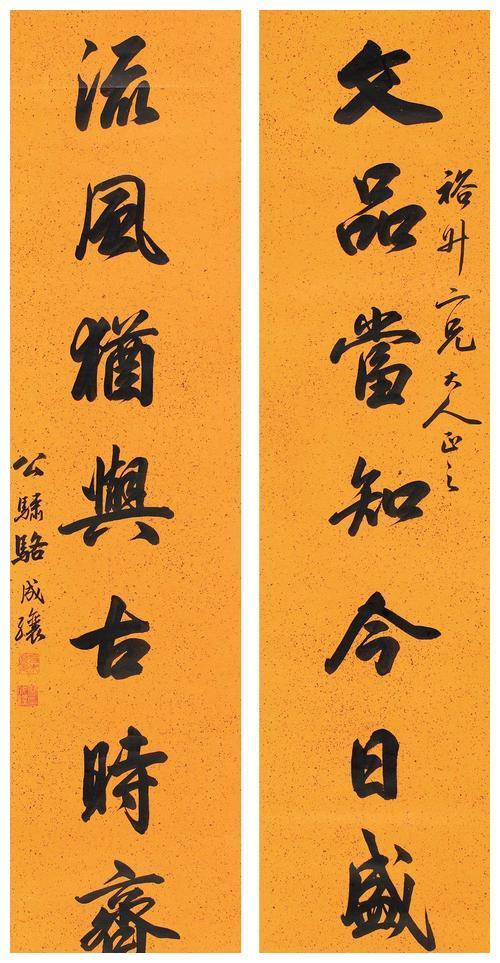 裕升二兄大人正之
文品當知今日盛
流風猶與古時齋
公驌駱成驤